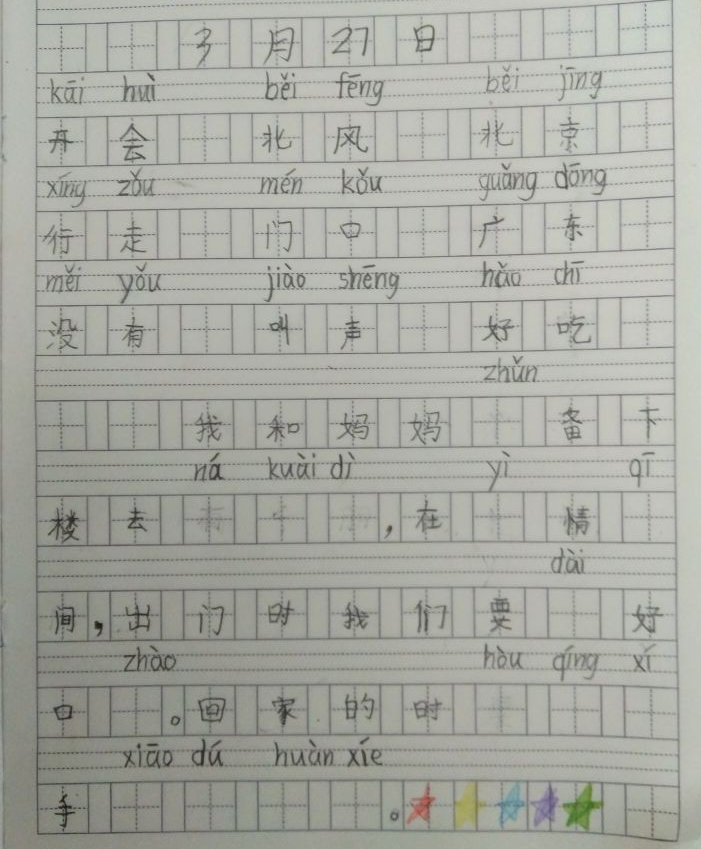 3月27日
kāi huì běi fēng běi jīng
开会 北风 北京
xíng zǒu mén kǒu guǎng dōng
行走 门口 广东
měi yǒu jiào shēng hǎo chī
没有 叫声 好吃
zhǔn
我和妈妈 备下
ná kuài dì yì qī
楼去 ,在 情
dài
间,出门时我们要 好
zhào hòu qíng xí
口 。回家的时
xiāo dú huàn xíe
手 。